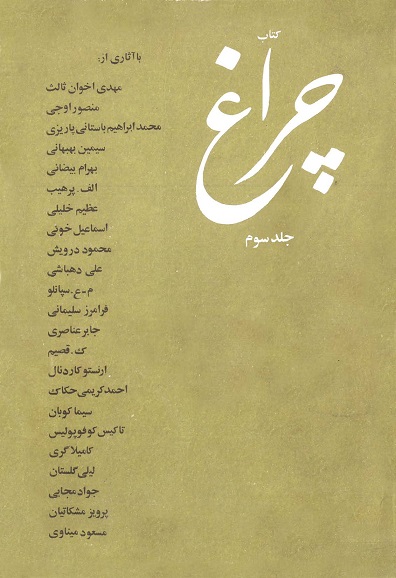 کتاب
چراغ
جلد سوم
با آثاری از:
مهدی اخوان ثالث
منصور اوجی
محمد ابراهیم باستانی پاریزی
سیمین بهبهانی
بهرام بیضائی
الف. پرهیب
عظیم خلیلی
اسماعیل خوئی
محمود درویش
علی دهباشی
م-ع. سپانلو
فرامرز سلیمانی
جابر عناصری
ک. قصیم
ارنستو کاردنال
احمد کریمی حکاک
سیما کوبان
تاکیس کوفوپولیس
کامیلا گری
لیلی گلستان
جواد مجابی
پرویز مشکاتیان
مسعود میناوی